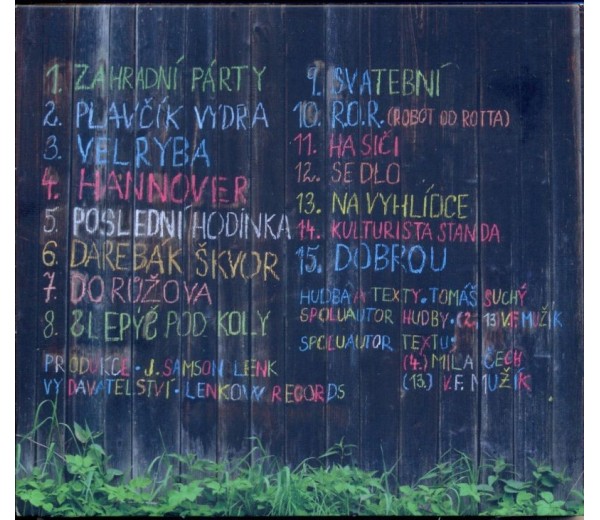 1. ZAHRADNÍ PÁRTY
2. PLAVČÍK VYDRA
3. VELRYBA
4. HANNOVER
5. POSLEDNÍ HODINKA
6. DAREBÁK ŠKVOR
7. DO RŮŽOVA
8. SLEPÝŠ POD KOLY
PRODUKCE • J. SAMSON LENK
VYDAVATELSTVÍ • LENKOW RECORDS
9. SVATEBNÍ
10. R.O.R. (ROBOT OD ROTTA)
11. HASIČI
12. SEDLO
13. NA VYHLÍDCE
14. KULTURISTA STANDA
15. DOBROU
HUDBA A TEXTY • TOMÁŠ SUCHÝ
SPOLUAUTOR HUDBY • (2., 13.) V.F. MUŽÍK
SPOLUAUTOR TEXTU:
(4.) MÍLA ČECH
(13.) V.F. MUŽÍK